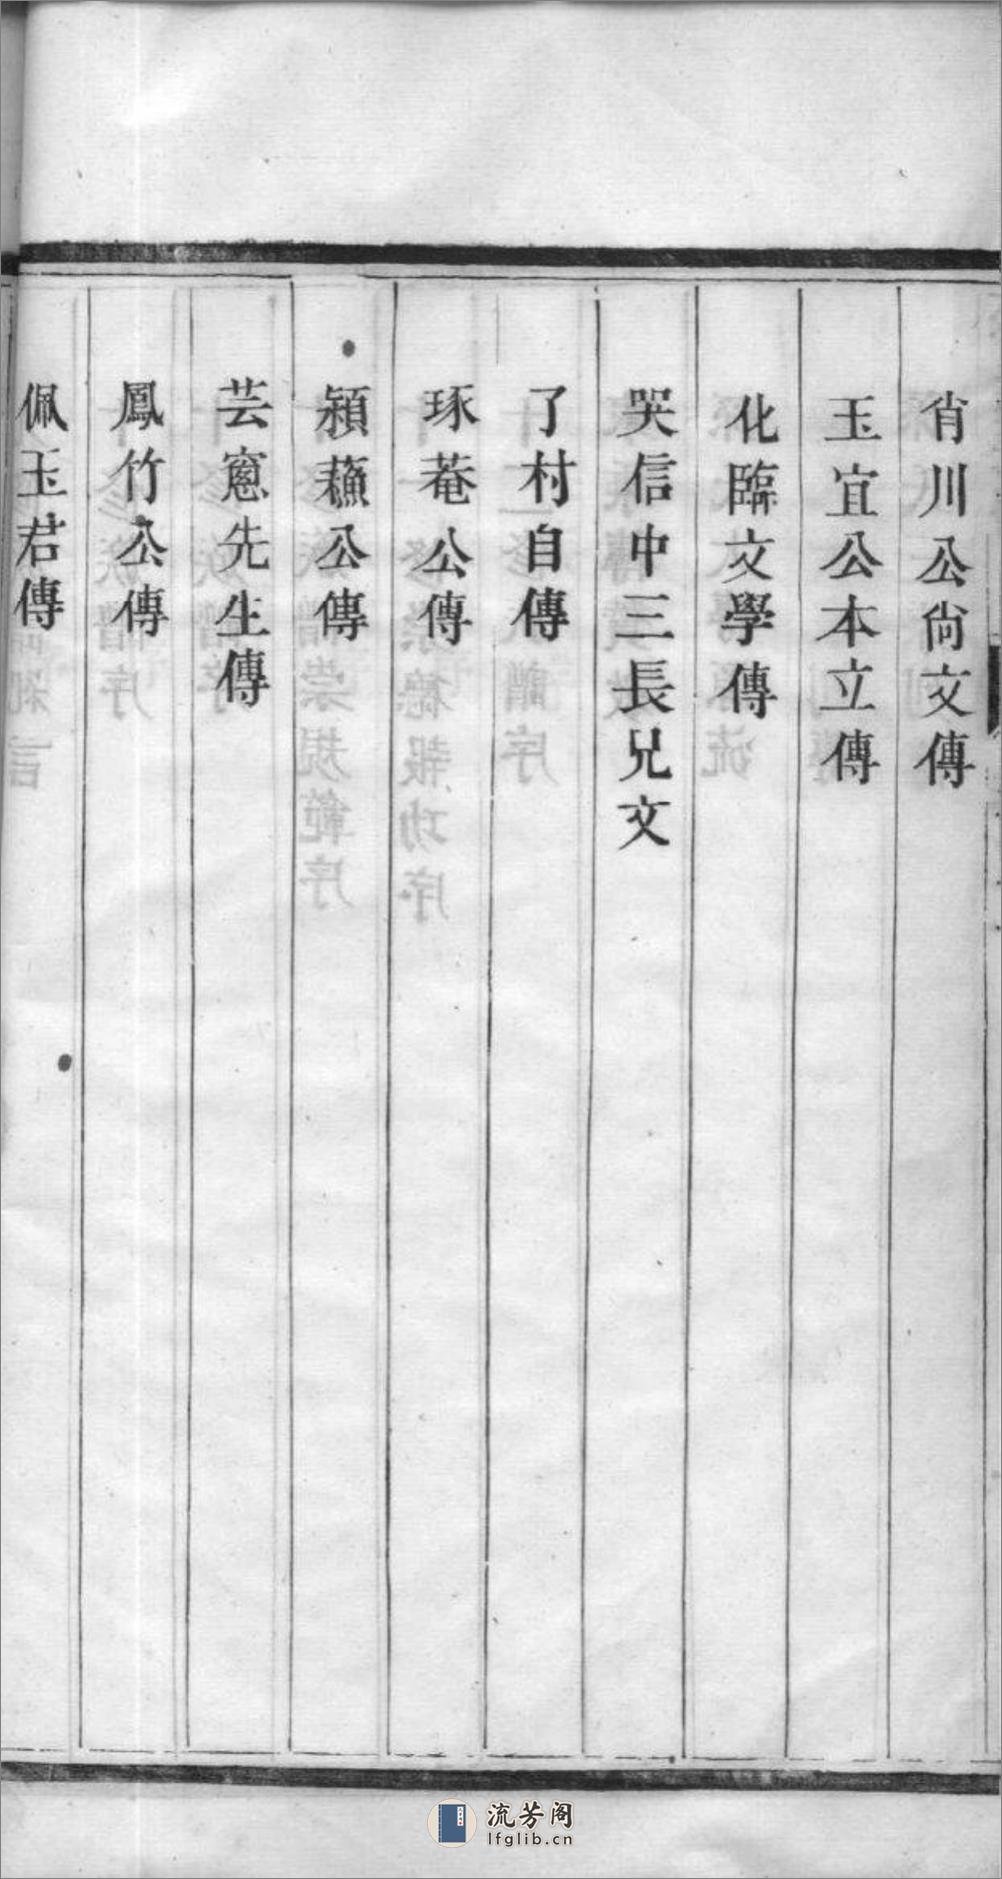 肖川公尙文傳
玉宜公本立傳
化臨文學傳
哭信中三長兄文
了村自傳
琢菴公傳
潁蘓公傳
芸窻先生傳
鳳竹公傳
佩玉君傳
流芳阁
lfglib.cn